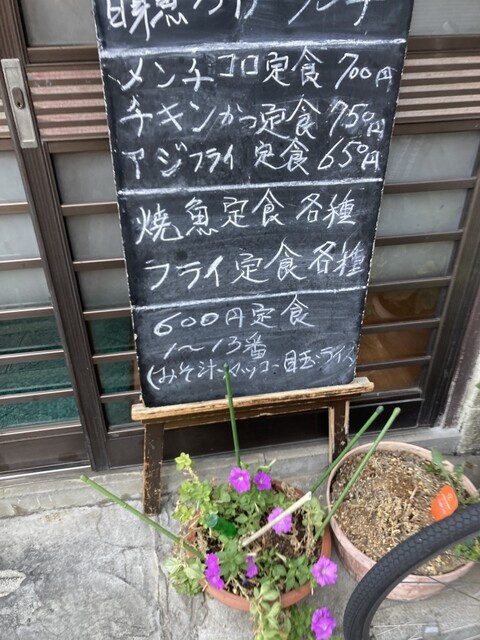 メンチコロ定食 700円
チキンかつ定食 750円
アジフライ定食 650円
焼魚定食 各種
フライ定食各種
600円定食
1〜13番
(みそ汁・ 目玉・ライス